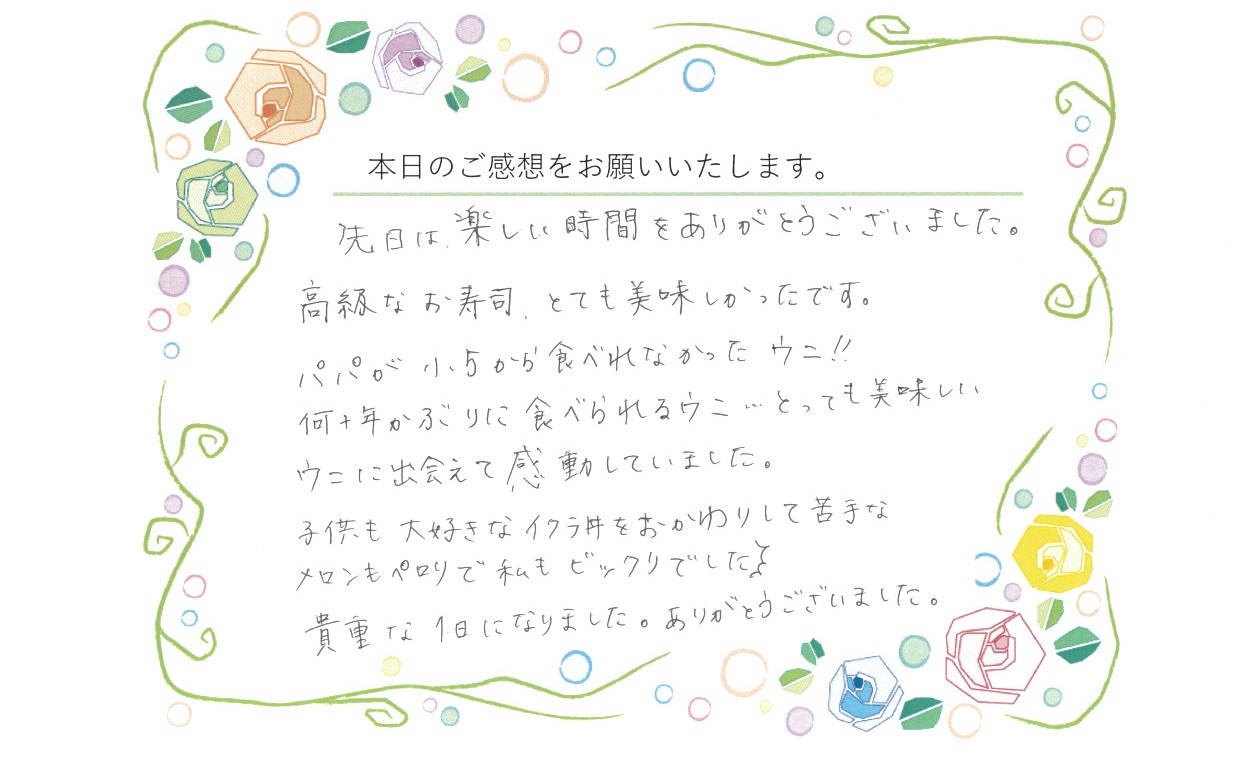 本日のご感想をお願いいたします。
先日は、楽しい時間をありがとうございました。
高級なお寿司、とても美味しかったです。
パパが小5から食べれなかったウニ!!
何十年かぶりに食べられるウニ…とっても美味しい
ウニに出会えて感動していました。
子供も大好きなイクラ丼をおかわりして苦手な
メロンもペロリで私もビックリでした
貴重な1日になりました。ありがとうございました。